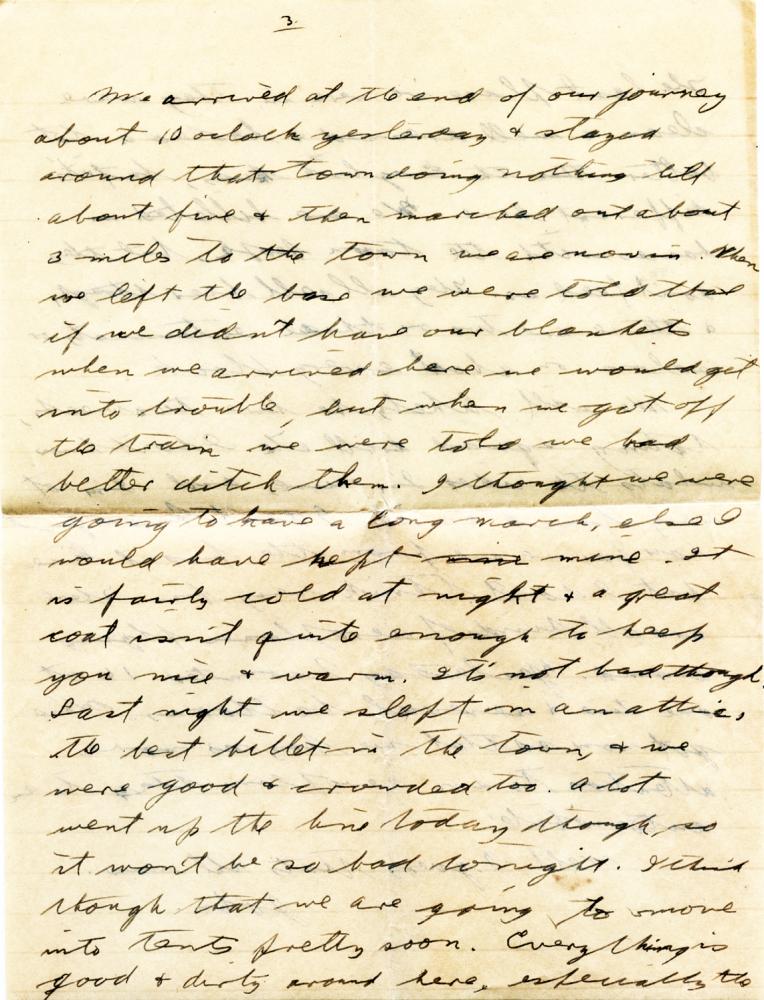 3.
We arrived at the end of our journey
about 10 oclock yesterday & stayed
around that town doing nothing till
about five & then marched out about
3 miles to the town we are now in. When
we left the base we were told that
if we didn't have our blankets
when we arrived here we would get
into trouble, but when we got off
the train we were told we had
better ditch them. I thought we were
going to have a long march, else I
would have kept mine. It
is fairly cold at night & a great
coat isn't quite enough to keep
you nice & warm. It's not bad though.
Last night we slept in an attic,
the best billet in the town, & we
were good & crowded too. A lot
went up the line today though, so
it won't be so bad tonight. I think
though that we are going to move
into tents pretty soon. Everything is
good & dirty around here, especially the